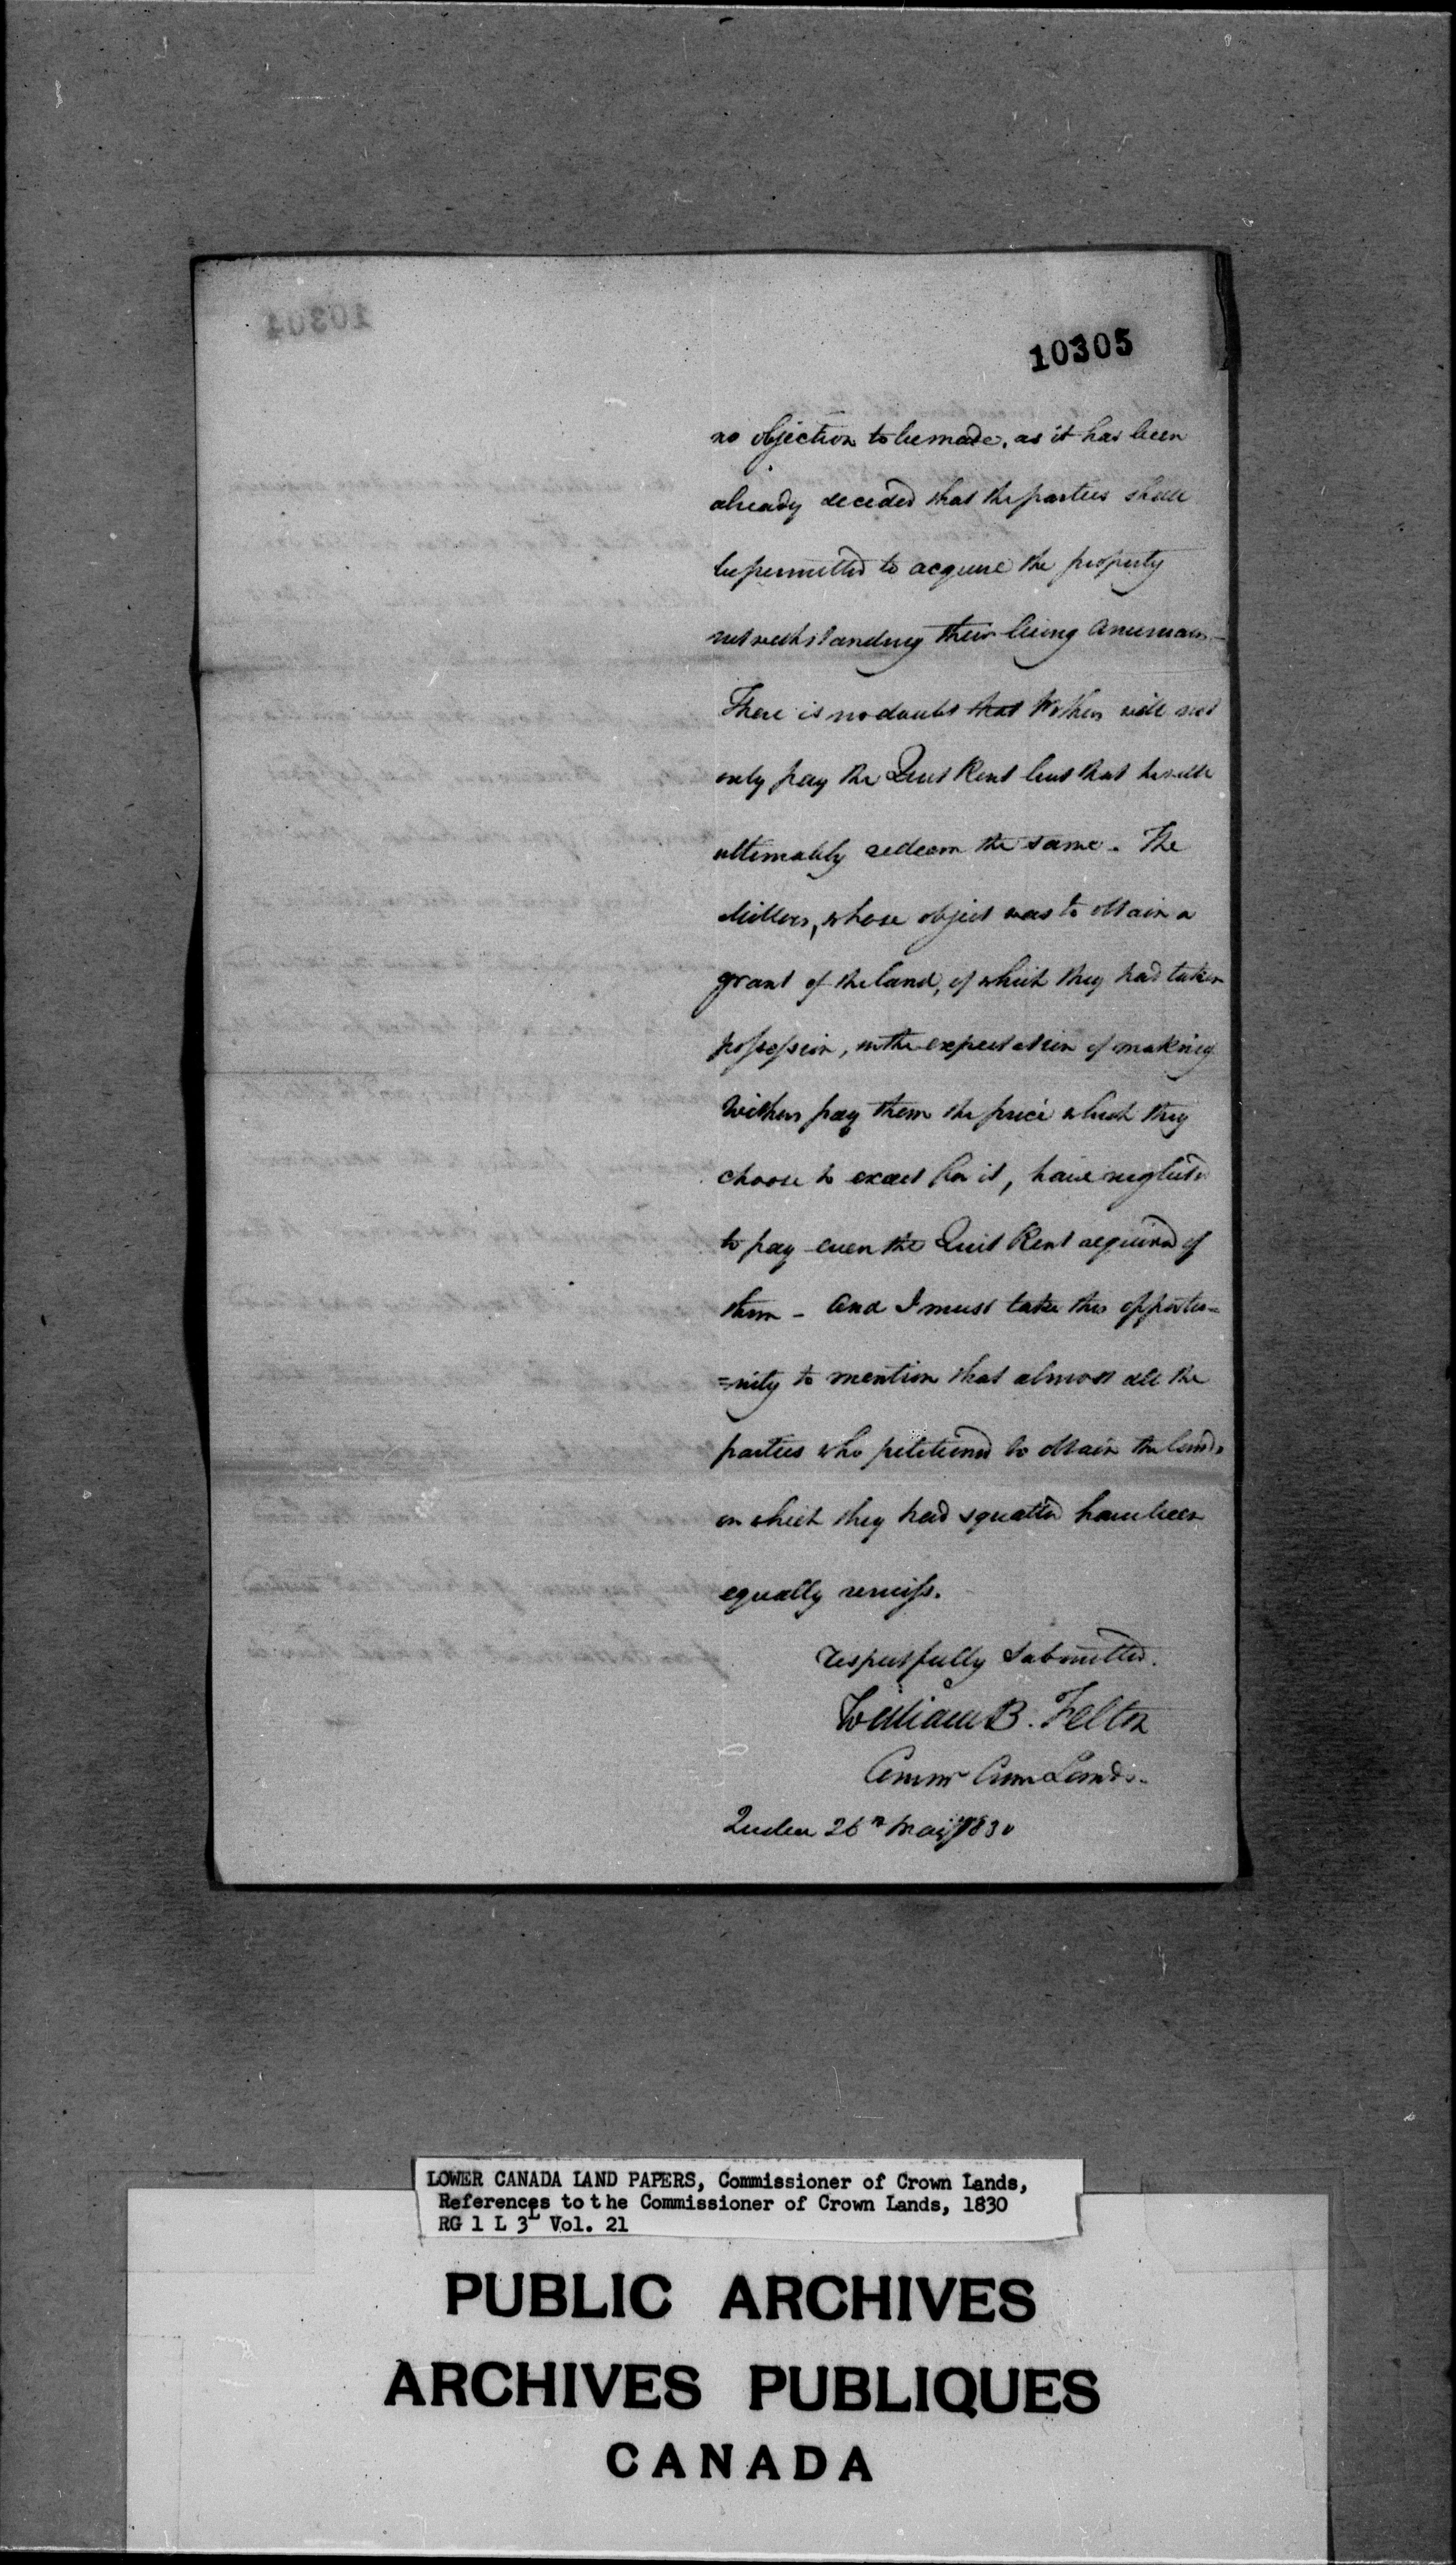 10304
10305
no objection to be made, as it has been
already decided that the parties shall
be permitted to acquire the property
notwithstanding their being American
There is no doubt that Withers will not
only pay the Quit Rent but that he will
ultimately redeem the same. The
Millers, whose object was to obtain a
grant of the land, of which they had taken
possession, in the expectation of making
Withers pay them the price which they
choose to exact for it, have neglected
to pay even the Quit Rent required of
them - And I must take this opportu=
=nity to mention that almost all the
parties who petitioned to obtain the lands
on which they had squatted have been
equally remiss.
respectfully submitted.
William B. Felton
Commr Crown Lands.
Quebec 26th May 1830
LOWER CANADA LAND PAPERS, Commissioner of Crown Lands,
References to the Commissioner of Crown Lands, 1830
RG 1 L 3L Vol. 21
PUBLIC ARCHIVES
ARCHIVES PUBLIQUES
CANADA